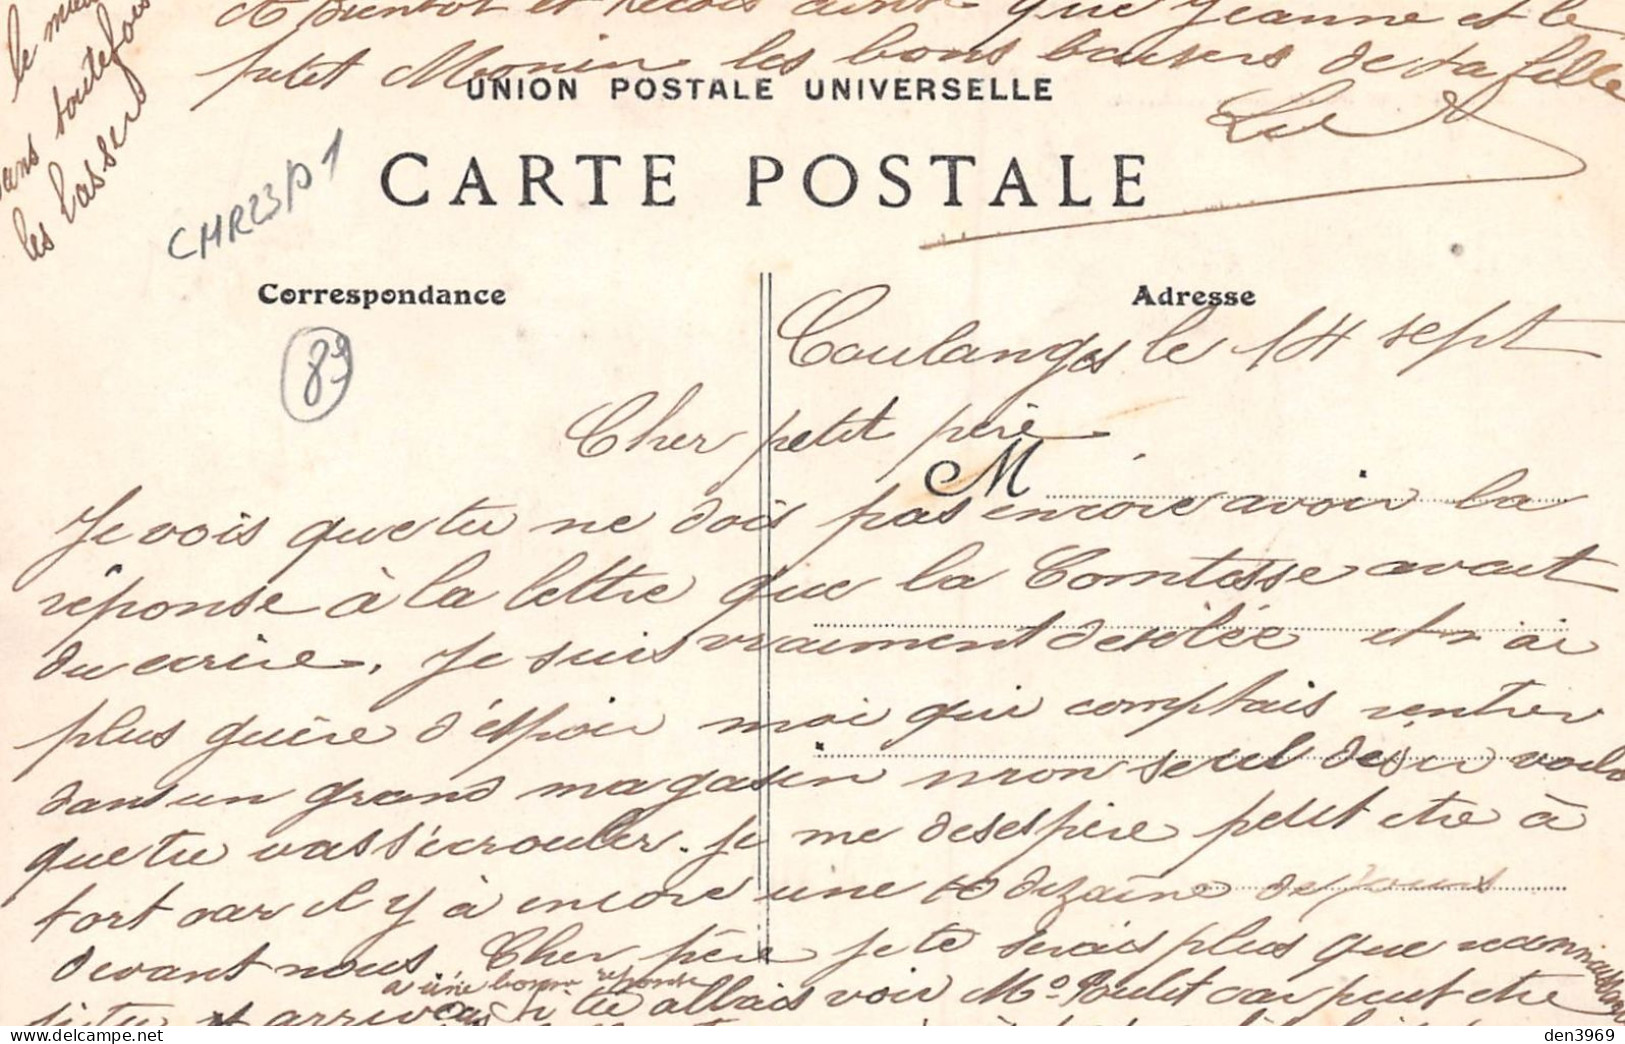 et bientôt et reçois ainsi que Jeanne et le
petit Monin les bons baisers de ta fille
Lu
le
sans toutefois
les
UNION POSTALE UNIVERSELLE
CARTE POSTALE
CHR23/01
Correspondance
Adresse
89
Coulanges le 14 sept
Cher petit père
M
Je vois que tu ne dois pas encore avoir la
réponse à la lettre que la Comtesse avait
du ecrire, Je suis vraiment desolée et n'ai
plus guère d'espoir moi qui comptais rentrer
dans un grand magasin mon seul désir voila
que tu vas s'ecrouler. Je me desespère petit etre à
tort car il y à encore une dizaine de jours
devant nous. Cher père je te serais plus que reconnaissante
à une bonne reponse
si tu arrivais si tu allais voir Mo Poulet car peut etre
den3969